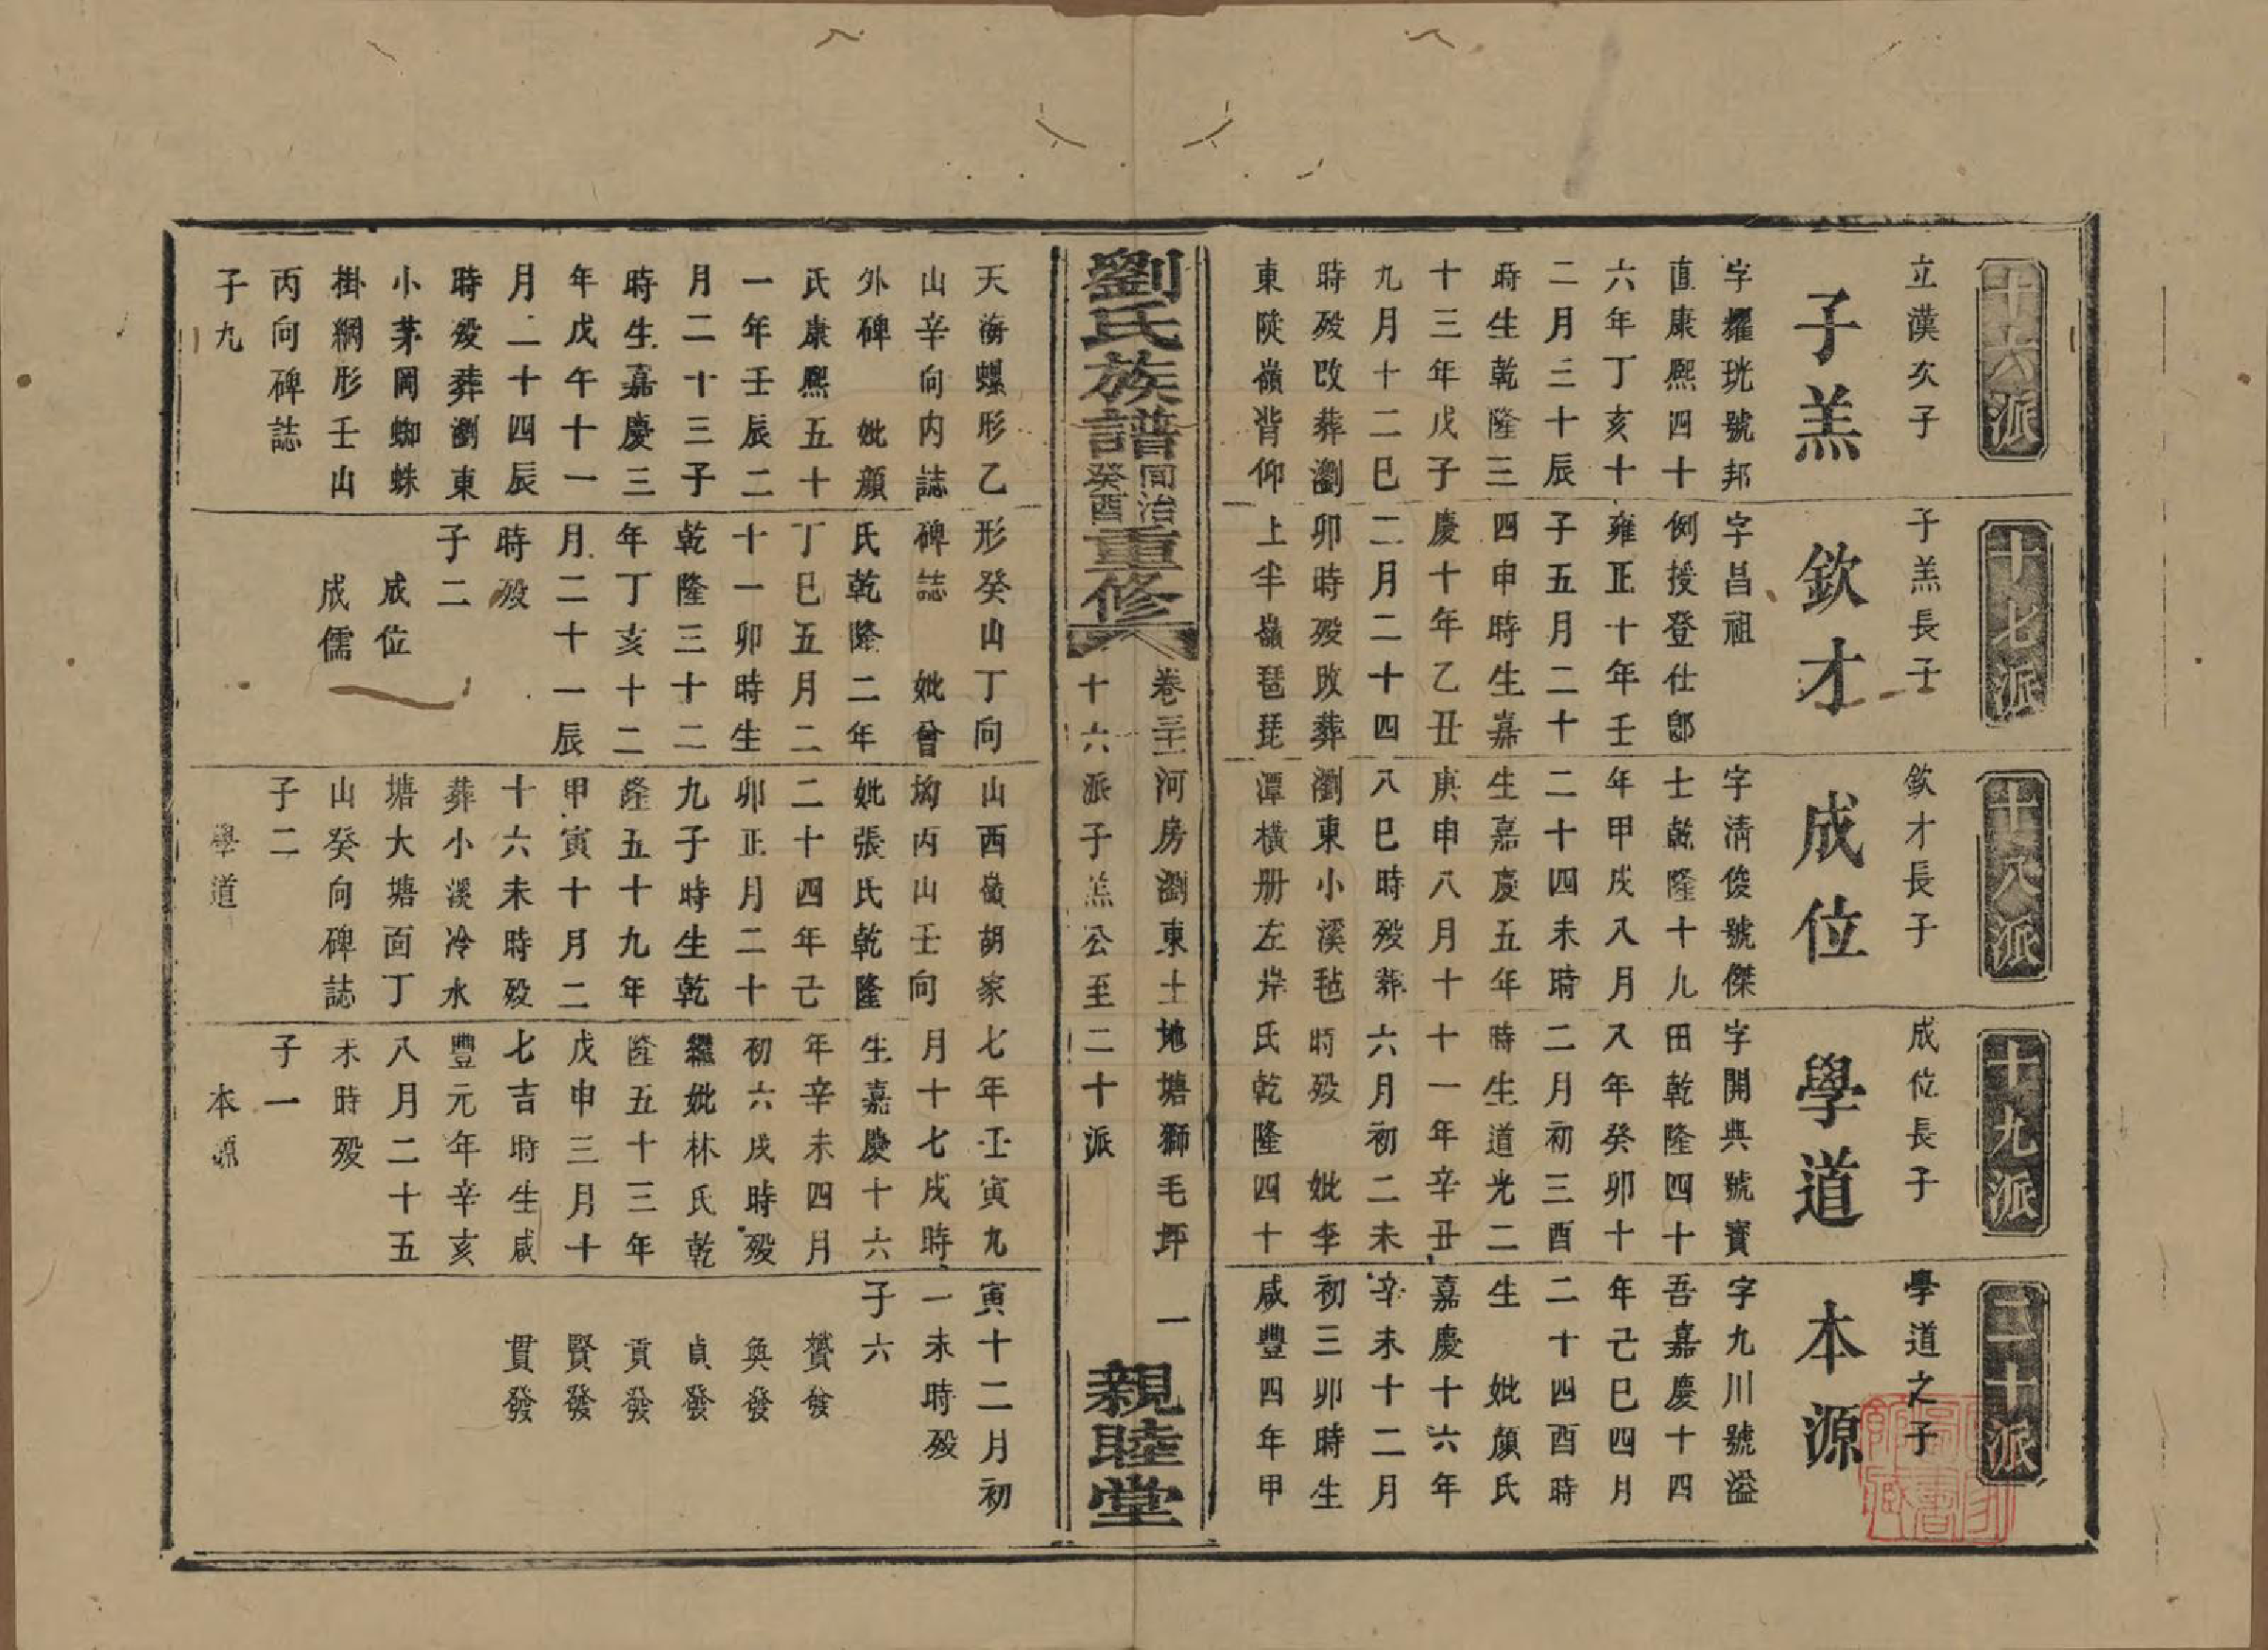 十六派
立漢次子
子羔
字耀珖號邦
直康熙四十
六年丁亥十
二月三十辰
時生乾隆三
十三年戊子
九月十二巳
時歿改葬瀏
東陝嶺背仰
天海螺形乙
山辛向内誌
外碑　妣顏
氏康熙五十
一年壬辰二
月二十三子
時生嘉慶三
年戊午十一
月二十四辰
時歿葬瀏東
小茅岡蜘蛛
掛網形壬山
丙向碑誌
子九
十七派
子羔長子
欽才
字昌祖
例授登仕郎
雍正十年壬
子五月二十
四申時生嘉
慶十年乙丑
二月二十四
卯時歿改葬
上半嶺琶琵
形癸山丁向
碑誌　妣曾
氏乾隆二年
丁巳五月二
十一卯時生
乾隆三十二
年丁亥十二
月二十一辰
時歿
子二
成位
成儒
十八派
欽才長子
成位
字淸俊號傑
士乾隆十九
年甲戌八月
二十四未時
生嘉慶五年
庚申八月十
八巳時歿葬
瀏東小溪毡
潭橫册左岸
山西嶺胡家
坳丙山壬向
妣張氏乾隆
二十四年己
卯正月二十
九子時生乾
隆五十九年
甲寅十月二
十六未時歿
葬小溪冷水
塘大塘面丁
山癸向碑誌
子二
學道
十九派
成位長子
學道
字開典號寶
田乾隆四十
八年癸卯十
二月初三酉
時生道光二
十一年辛丑
六月初二未
時歿　妣李
氏乾隆四十
七年壬寅九
月十七戌時
生嘉慶十六
年辛未四月
初六戌時歿
繼妣林氏乾
隆五十三年
戊申三月十
七吉時生咸
豐元年辛亥
八月二十五
未時歿
子一
本源
二十派
學道之子
本源
字九川號溢
吾嘉慶十四
年己巳四月
二十四酉時
生　妣顏氏
嘉慶十六年
辛未十二月
初三卯時生
咸豐四年甲
寅十二月初
一未時歿
子六
贊發
奐發
貞發
貢發
賢發
貫發
劉氏族譜同治癸酉重修
卷三十一河房瀏東土地塘獅毛坪　一
十六派子羔公至二十派
親睦堂